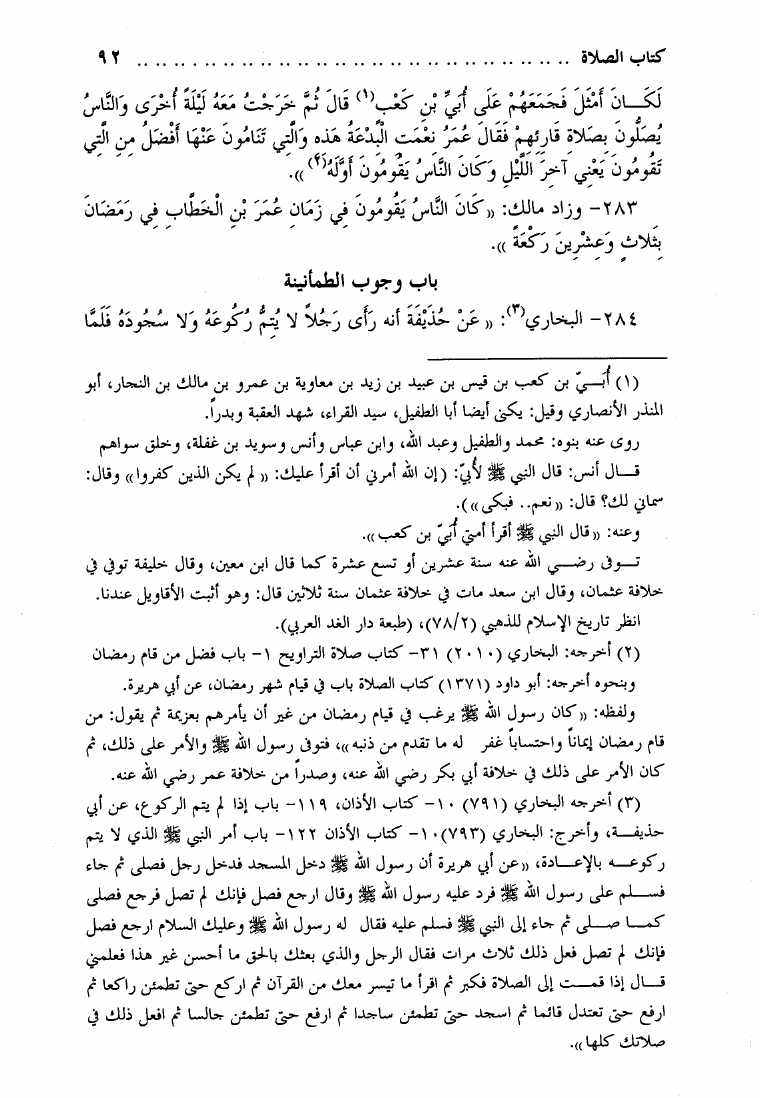 كتاب الصلاة .. .. .. .. .. .. .. .. .. .. .. .. .. .. .. .. .. .. .. .. .. .. .. ٩٢
لَكَـــانَ أَمْثَلَ فَجَمَعَهُمْ عَلَى أُبَيِّ بْنِ كَعْبٍ(١) قَالَ ثُمَّ خَرَجْتُ مَعَهُ لَيْلَةً أُخْرَى وَالنَّاسُ
يُصَلُّونَ بِصَلاةِ قَارِئِهِمْ فَقَالَ عُمَرُ نِعْمَتِ الْبِدْعَةُ هَذِهِ وَالَّتِي تَنَامُونَ عَنْهَا أَفْضَلُ مِنِ الَّتِي
تَقُومُونَ يَعْنِي آخِرَ اللَّيْلِ وَكَانَ النَّاسُ يَقُومُونَ أَوَّلَهُ(٢) )).
٢٨٣- وزاد مالك: (( كَانَ النَّاسُ يَقُومُونَ فِي زَمَانِ عُمَرَ بْنِ الْخَطَّابِ فِي رَمَضَانَ
بِثَلاثٍ وَعِشْرِينَ رَكْعَةً )).
باب وجوب الطمأنينة
٢٨٤- البخاري(٣): (( عَنْ حُذَيْفَةَ أنه رَأَى رَجُلاً لا يُتِمُّ رُكُوعَهُ وَلا سُجُودَهُ فَلَمَّا
(١) أُبَـــيّ بن كعب بن قيس بن عبيد بن زيد بن معاوية بن عمرو بن مالك بن النجار، أبو
المنذر الأنصاري وقيل: يكنى أيضا أبا الطفيل، سيد القراء، شهد العقبة وبدراً.
روى عنه بنوه: محمد والطفيل وعبد الله، وابن عباس وأنس وسويد بن غفلة، وخلق سواهم
قـــال أنس: قال النبي ﷺ لأُبيّ: (إن الله أمرني أن أقرأ عليك: (( لم يكن الذين كفروا)) وقال:
سماني لك؟ قال: ((نعم.. فبكى))).
وعنه: ((قال النبي ﷺ أقرأ أمتي أُبَيّ بن كعب)).
تـــوفى رضـــي الله عنه سنة عشرين أو تسع عشرة كما قال ابن معين، وقال خليفة توفي في
خلافة عثمان، وقال ابن سعد مات في خلافة عثمان سنة ثلاثين قال: وهو أثبت الأقاويل عندنا.
انظر تاريخ الإسلام للذهبي (٧٨/٢)، (طبعة دار الغد العربي).
(٢) أخرجه: البخاري (٢٠١٠) ٣١- كتاب صلاة التراويح ١- باب فضل من قام رمضان
وبنحوه أخرجه: أبو داود (١٣٧١) كتاب الصلاة باب في قيام شهر رمضان، عن أبي هريرة.
ولفظه: ((كان رسول الله ﷺ يرغب في قيام رمضان من غير أن يأمرهم بعزيمة ثم يقول: من
قام رمضان إيماناً واحتساباً غفر له ما تقدم من ذنبه))، فتوفى رسول الله ﷺ والأمر على ذلك، ثم
كان الأمر على ذلك في خلافة أبي بكر رضي الله عنه، وصدراً من خلافة عمر رضي الله عنه.
(٣) أخرجه البخاري (٧٩١) ١٠- كتاب الأذان، ١١٩- باب إذا لم يتم الركوع، عن أبي
حذيفـــة، وأخرج: البخاري (٧٩٣) ١٠- كتاب الأذان ١٢٢- باب أمر النبي ﷺ الذي لا يتم
ركوعـــه بالإعـــادة، ((عن أبي هريرة أن رسول الله ﷺ دخل المسجد فدخل رجل فصلى ثم جاء
فســـلم على رسول الله ﷺ فرد عليه رسول الله ﷺ وقال ارجع فصل فإنك لم تصل فرجع فصلى
كمـــا صـــلى ثم جاء إلى النبي ﷺ فسلم عليه فقال له رسول الله ﷺ وعليك السلام ارجع فصل
فإنك لم تصل فعل ذلك ثلاث مرات فقال الرجل والذي بعثك بالحق ما أحسن غير هذا فعلمني
قـــال إذا قمـــت إلى الصلاة فكبر ثم اقرأ ما تيسر معك من القرآن ثم اركع حتى تطمئن راكعا ثم
ارفع حتى تعتدل قائما ثم اسجد حتى تطمئن ساجدا ثم ارفع حتى تطمئن جالسا ثم افعل ذلك في
صلاتك كلها)).